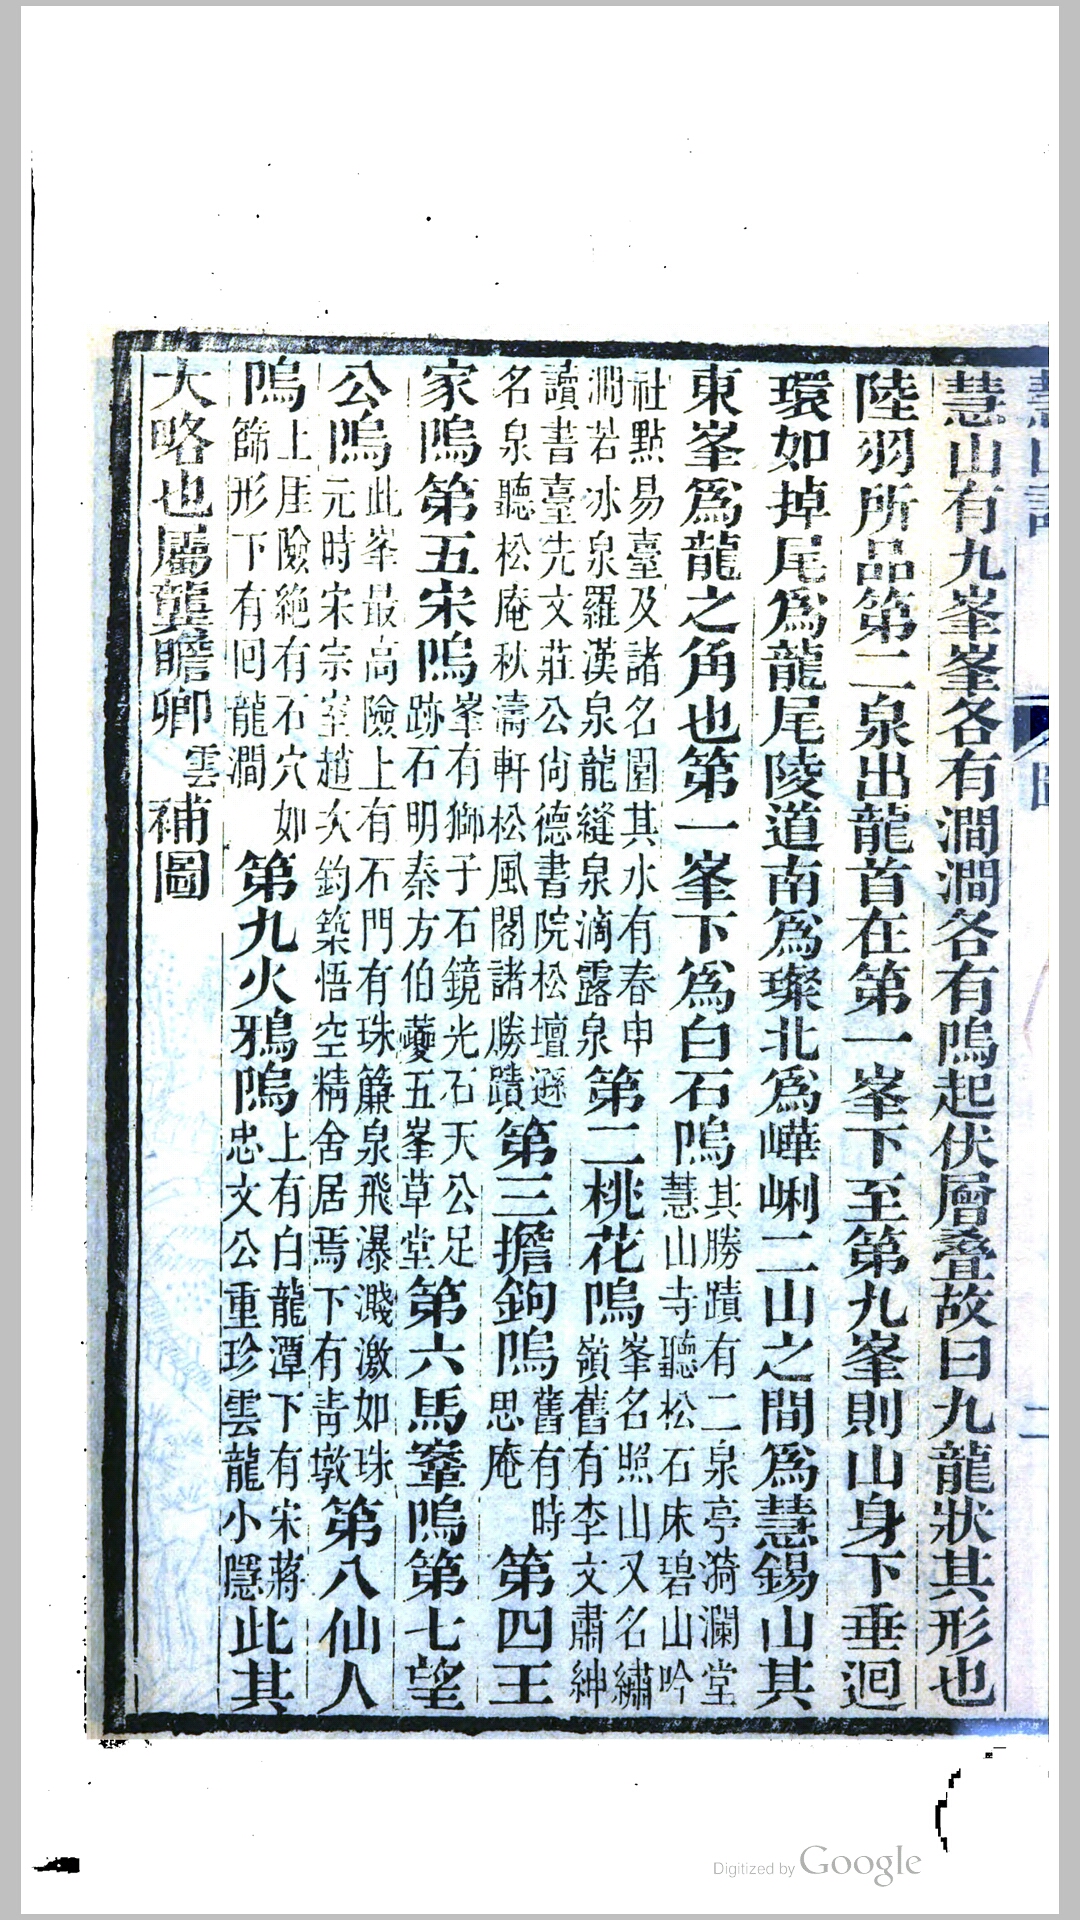 慧山有九峯峯各有澗澗各有隖起伏層疊故曰九龍狀其形也
陸羽所品第二泉出龍首在第一峯下至第九峯則山身下垂迴
環如掉尾爲龍尾陵道南爲璨北爲嶂崻二山之間爲慧錫山其
東峯爲龍之角也第一峯下爲白石隖其勝蹟有二泉亭漪瀾堂慧山寺聽松石床碧山吟
社點易臺及諸名園其水有春申澗若冰泉羅漢泉龍縫泉滴露泉第二桃花隖峯名照山又名繡嶺舊有李文肅紳
讀書臺先文莊公尚德書院松壇遜名泉聽松庵秋濤軒松風閣諸勝蹟第三擔鉤隖舊有時思庵第四王
家隖第五宋隖峯有獅子石鏡光石天公足跡石明秦方伯夔五峯草堂第六馬鞌隖第七望
公隖此峯最高險上有石門有珠簾泉飛瀑濺激如珠元時宋宗室趙次鈞築悟空精舍居焉下有靑墩第八仙人
隖上厓險絶有石穴如篩形下有回龍澗第九火鴉隖上有白龍潭下有宋蔣忠文公重珍雲龍小隱此其
大略也屬龔瞻卿雲補圖
二
Digitized by Google